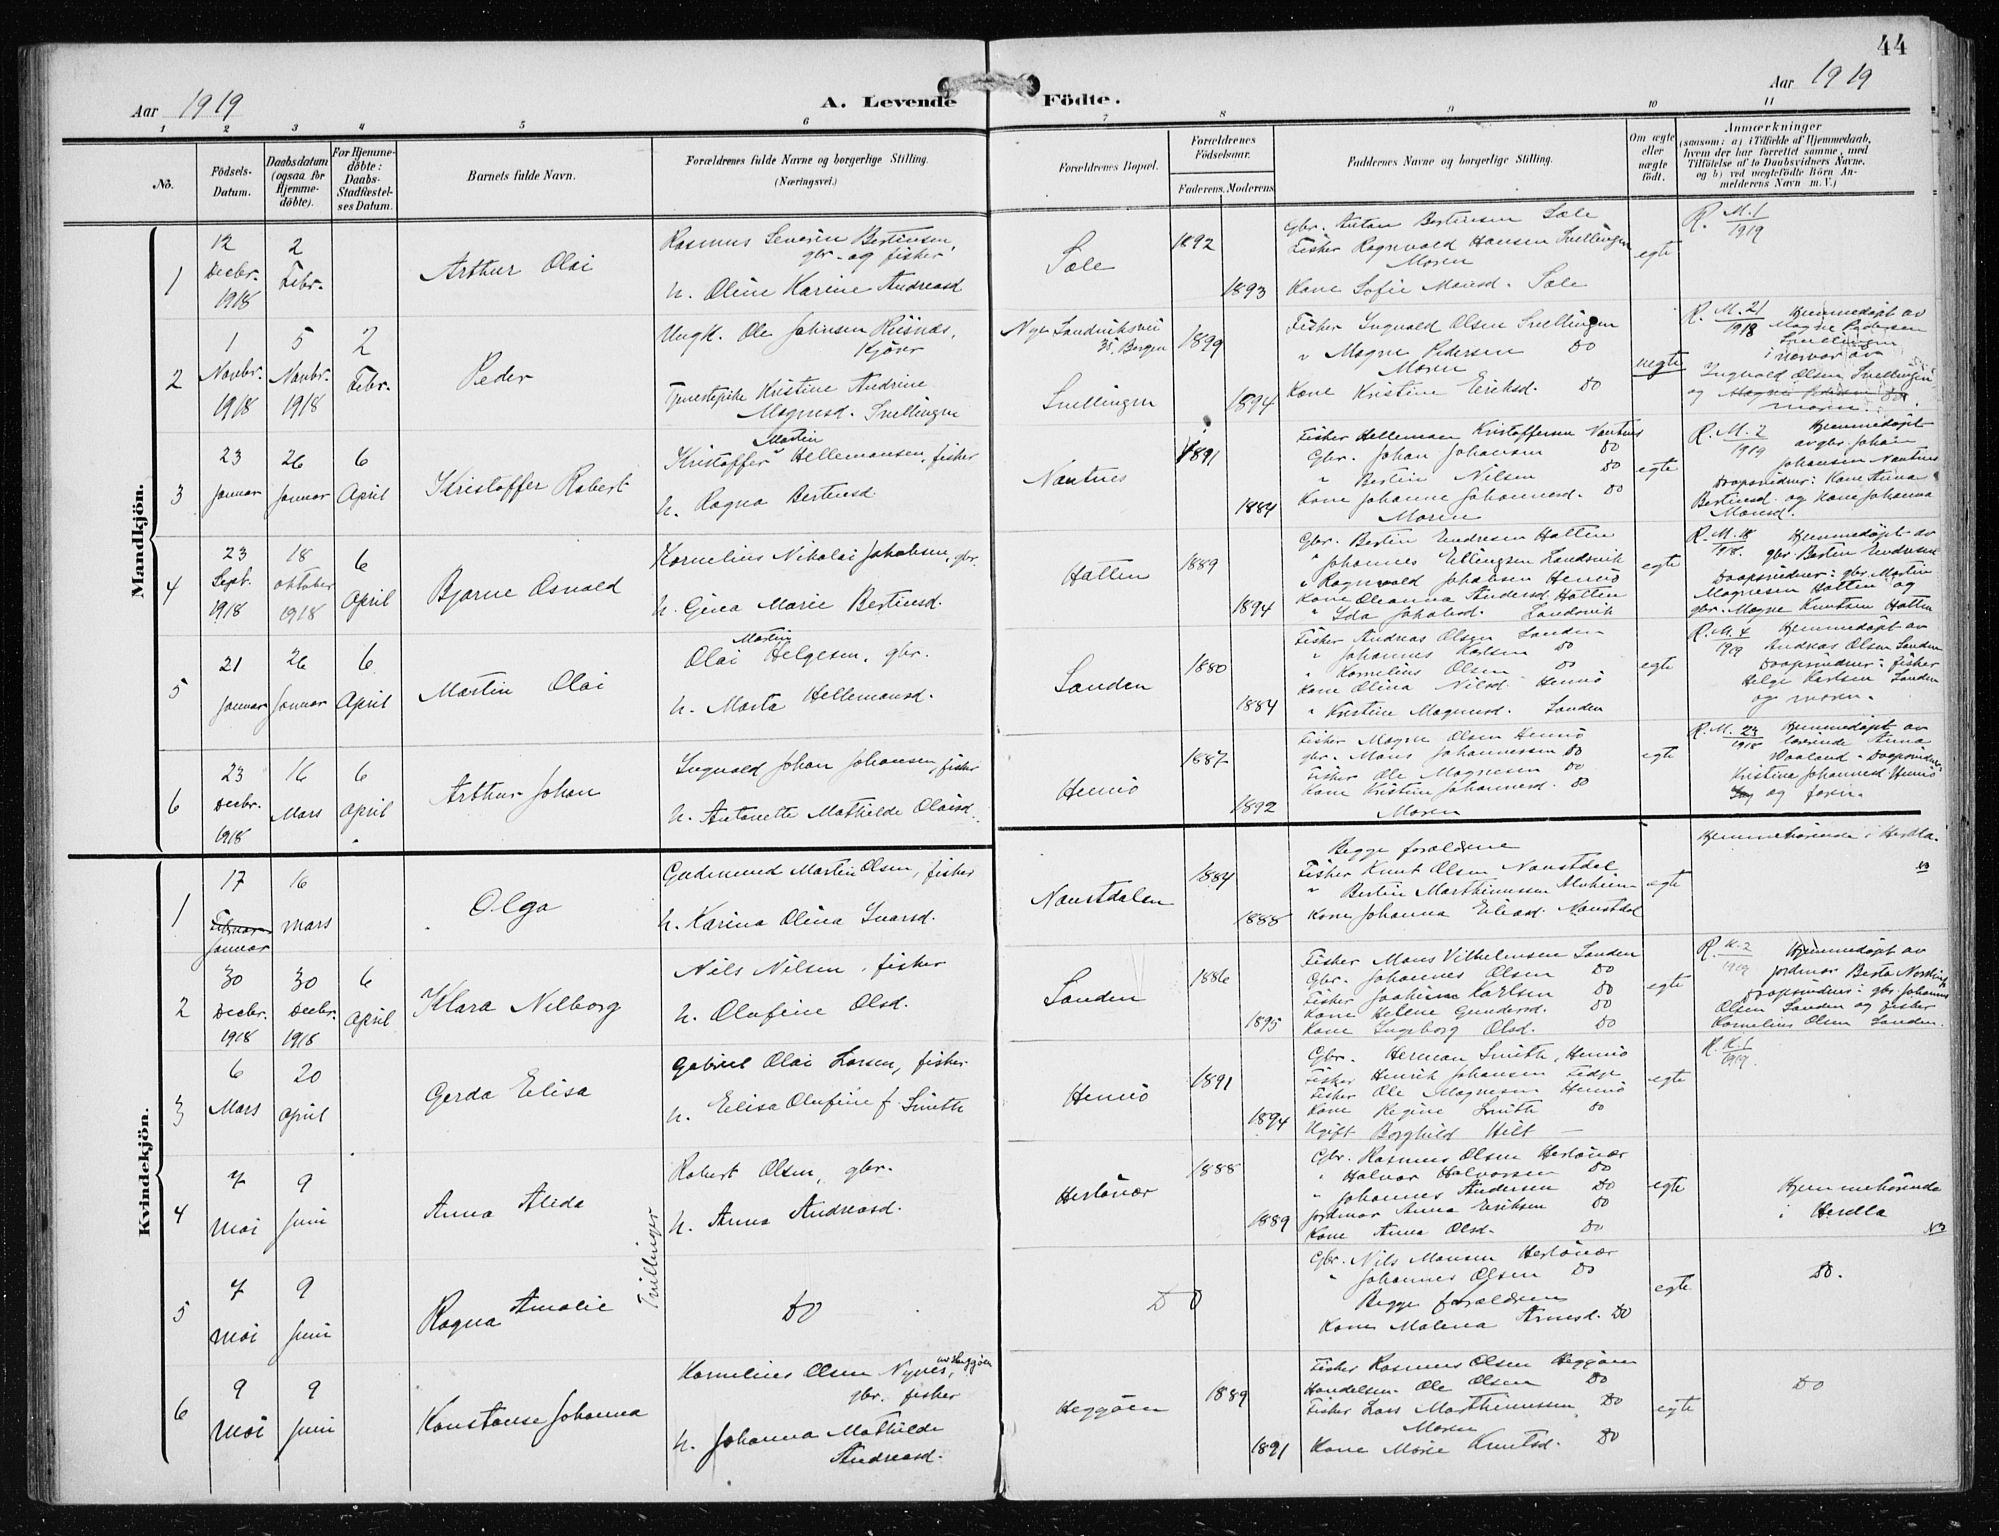 44
Aar 1919
A. Levende Födte.
Aar 1919
1 2 3 4 5 6 7 8 9 10 11
No.
Födsels-Datum.
Daabsdatum (ogsaa for Hjemme-döbte).
For Hjemme-döbte: Daabs-Stadfæstel-ses Datum.
Barnets fulde Navn.
Forældrenes fulde Navne og borgerlige Stilling.
(Næringsvei.)
Forældrenes Bopæl.
Forældrenes Födselsaar.
Faderens. Moderens.
Faddernes Navne og borgerlige Stilling.
Om ægte eller uægte födt.
Anmærkninger
(saasom: a) i Tilfælde af Hjemmedaab, hvem der har forrettet samme, med Tilföielse af to Daabsvidners Navne. og b) ved uægtefödte Börn An-melderens Navn m. V.)
Mandkjön.
1
12 Decbr. 1918
2 Febr.
Arthur Olai
Rasmus Severin Bertinsen,
gbr. og fisker
h. Oline Karine Andreasd
Sæle
1892
1893
Gbr. Antan Bertinsen Sæle
Fisker Ragnvald Hansen Snellingen
Moren
Kone Sofie Monsd. Sæle
egte
R. M. 1
1919
2
1 Novbr. 1918
5 Novbr. 1918
2 Febr.
Peder
Ungk. Ole Johnsen Risnes,
Tjenestepike Kristine Andrine
Magnesd. Snellingen
Nye Sandviksvei
Bergen
Snellingen
1899
1894
Fisker Ingvald Olsen Snellingen
" Magne Pedersen Do
Moren
Kone Kristine Eriksd. Do
uegte
R. M. 21
1918
Hjemmedøpt av
Magne Pedersen
Snellingen
i nærvær av
Ingvald Olsen Snellingen
og Magne Pedersen Do
moren.
3
23 Januar
26 Januar
6 April
Kristoffer Robert
Martin
Kristoffer Hellemansen, fisker
h. Ragna Bertinsd
Nautnes
1891
1884
Fisker Helleman Kristoffersen Nautnes
Gbr. Johan Johansen Do
" Bertin Nilsen Do
Kone Johanne Johannesd. Do
Moren
egte
R. M. 2
1919
Hjemmedøpt
av gbr. Johan
Johansen Nautnes
Daapsvidner: Kone Anna
Bertinsd. og Kone Johanna
Monsd.
4
23 Sept. 1918
18 oktober 1918
6 April
Bjarne Osvald
Kornelius Nikolai Jakobsen, gbr.
h. Gina Marie Bertinsd.
Hatten
1889
1894
Gbr. Bertin Endresen Hatten
" Johannes Ellingsen Landsvik
" Ragnvald Johansen Hennö
Kone Oleanna Andersd Hatten
" Ida Jakobsd. Landsvik
egte
R. M. 18
1918.
Hjemmedøpt av
gbr. Bertin Endresen
Daapsvidner: gbr. Martin
Magnesen Hatten og
gbr. Magne Knutsen Hatten
5
21 Januar
26 Januar
6 April
Martin Olai
Martin
Olai Helgesen, gbr.
h. Marta Hellemansd.
Sanden
1880
1884
Fisker Andreas Olsen Sanden
" Johannes Karlsen Do
" Kornelius Olsen Do
Kone Olina Nilsd Hennö
" Kristine Magnesd. Sanden
egte
R. M. 4
1919
Hjemmedøpt av
Andreas Olsen Sanden
Daapsvidner: fisker
Helge Sanden
og moren.
6
23 Decbr. 1918
16 Mars
6 April
Arthur Johan
Ingvald Johan Johansen, fisker
h. Antonette Mathilde Olaisd.
Hennö
1887
1892
Fisker Magne Olsen Hennö
gbr. Mons Johannessen Do
Fisker Ole Magnesen Do
Kone Kristine Johannesd. Do
Moren
egte
R. M. 23
1918
Hjemmedøpt av
lærerinde Anna
Vaaland. Daapsvidner
Kristina Johannesd Hennö
og faren.
Kvindekjön.
1
17 Februar Januar
16 mars
Olga
Gudmund Martin Olsen, fisker
h. Karina Olina Ivarsd.
Naustdalen
1884
1888
Begge forældrene
Fisker Knut Olsen Naustdal
" Bertin Marthinussen
Kone Johanna Eliasd. Naustdal
egte
Hjemmehørende i Herdla.
2
30 Decbr. 1918
30 Decbr. 1918
6 April
Klara Nilborg
Nils Nilsen, fisker
h. Olufine Olsd.
Sanden
1886
1895
Fisker Mons Vilhelmsen Sanden
Gbr. Johannes Olsen Do
Fisker Joahim Karlsen Do
Kone Helene Gundersd. Do
Kone Ingeborg Olsd. Do
egte
R. K. 2
1919
Hjemmedøpt av
jordmor Berta
Daapsvidner: gbr. Johannes
Olsen Sanden og fisker
Kornelius Olsen Sanden.
3
6 Mars
20 April
Gerda Elisa
Gabriel Olai Larsen, fisker
h. Elisa Olufine f. Smith
Hennö
1891
1894
Gbr. Herman Smith, Hennö
Fisker Henrik Johansen Fedje
Fisker Ole Magnesen Hennö
Kone Regine Smith Do
Ugift Borghild Hilt —
egte
R. K. 1
1919.
4
7 Mai
9 Juni
Anna Alida
Tvillinger
Robert Olsen, gbr.
h. Anna Andreasd.
Herlövær
1888
1889
Gbr. Rasmus Olsen Herlövær
" Halvor Halvorsen Do
" Johannes Andersen Do
Jordmor Anna Eriksen Do
Kone Anna Olsd. Do
egte
Hjemmehørende
i Herdla
5
7 Mai
9 Juni
Ragna Amalie
Do
Do
Gbr. Nils Monsen Herlövær
" Johannes Olsen Do
Begge forældrene
Kone Malena Arnesd. Do
egte
Do.
6
9 Mai
9 Juni
Konstanse Johanna
Kornelius Olsen Nynes, av Heggøen
gbr. fisker
h. Johanna Mathilde
Andreasd.
Heggöen
1889
1891
Fisker Rasmus Olsen Heggöen
Handelsm. Ole Olsen Do
Fisker Lars Marthinussen Do
Moren
Kone Marie Knutsd. Do
egte
Do